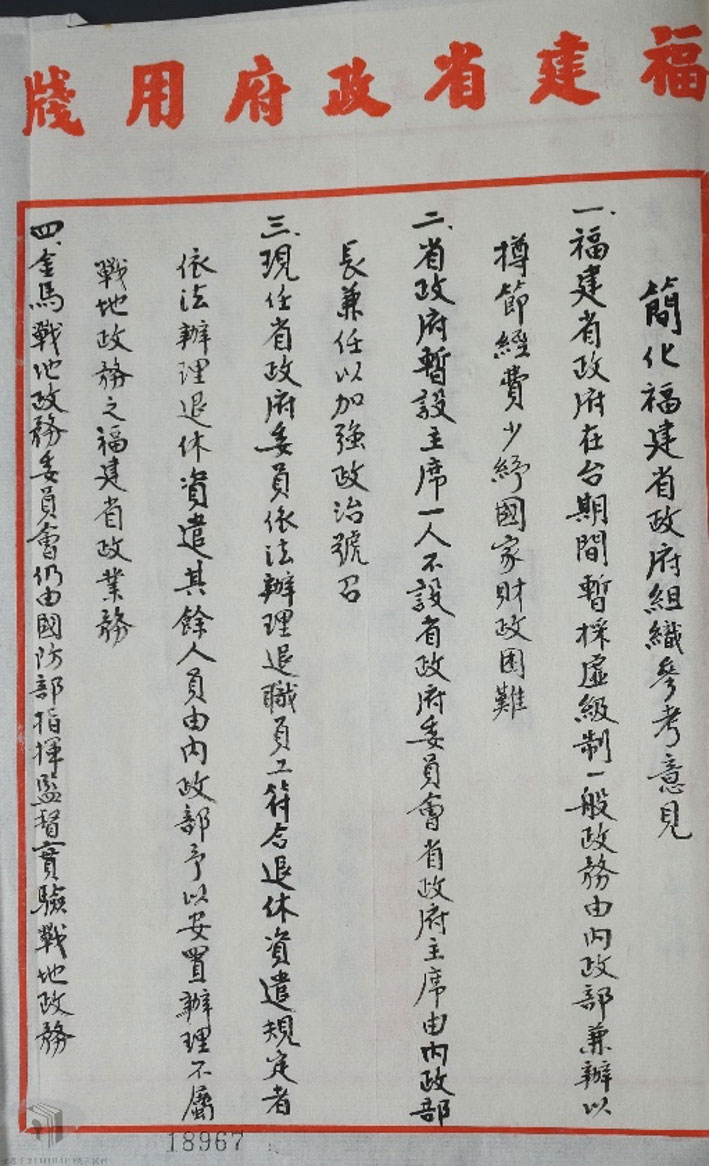 福建省政府用牋
簡化福建省政府組織參考意見
一、福建省政府在台期間暫採虛級制一般政務由內政部兼辦以
撙節經費少紓國家財政困難
二、省政府暫設主席一人不設省政府委員會省政府主席由內政部
長兼任以加強政治號召
三、現任省政府委員依法辦理退職員工符合退休資遣規定者
依法辦理退休資遣其餘人員由內政部予以安置辦理不屬
戰地政務之福建省政業務
四、金馬戰地政務委員會仍由國防部指揮監督實驗戰地政務
18967